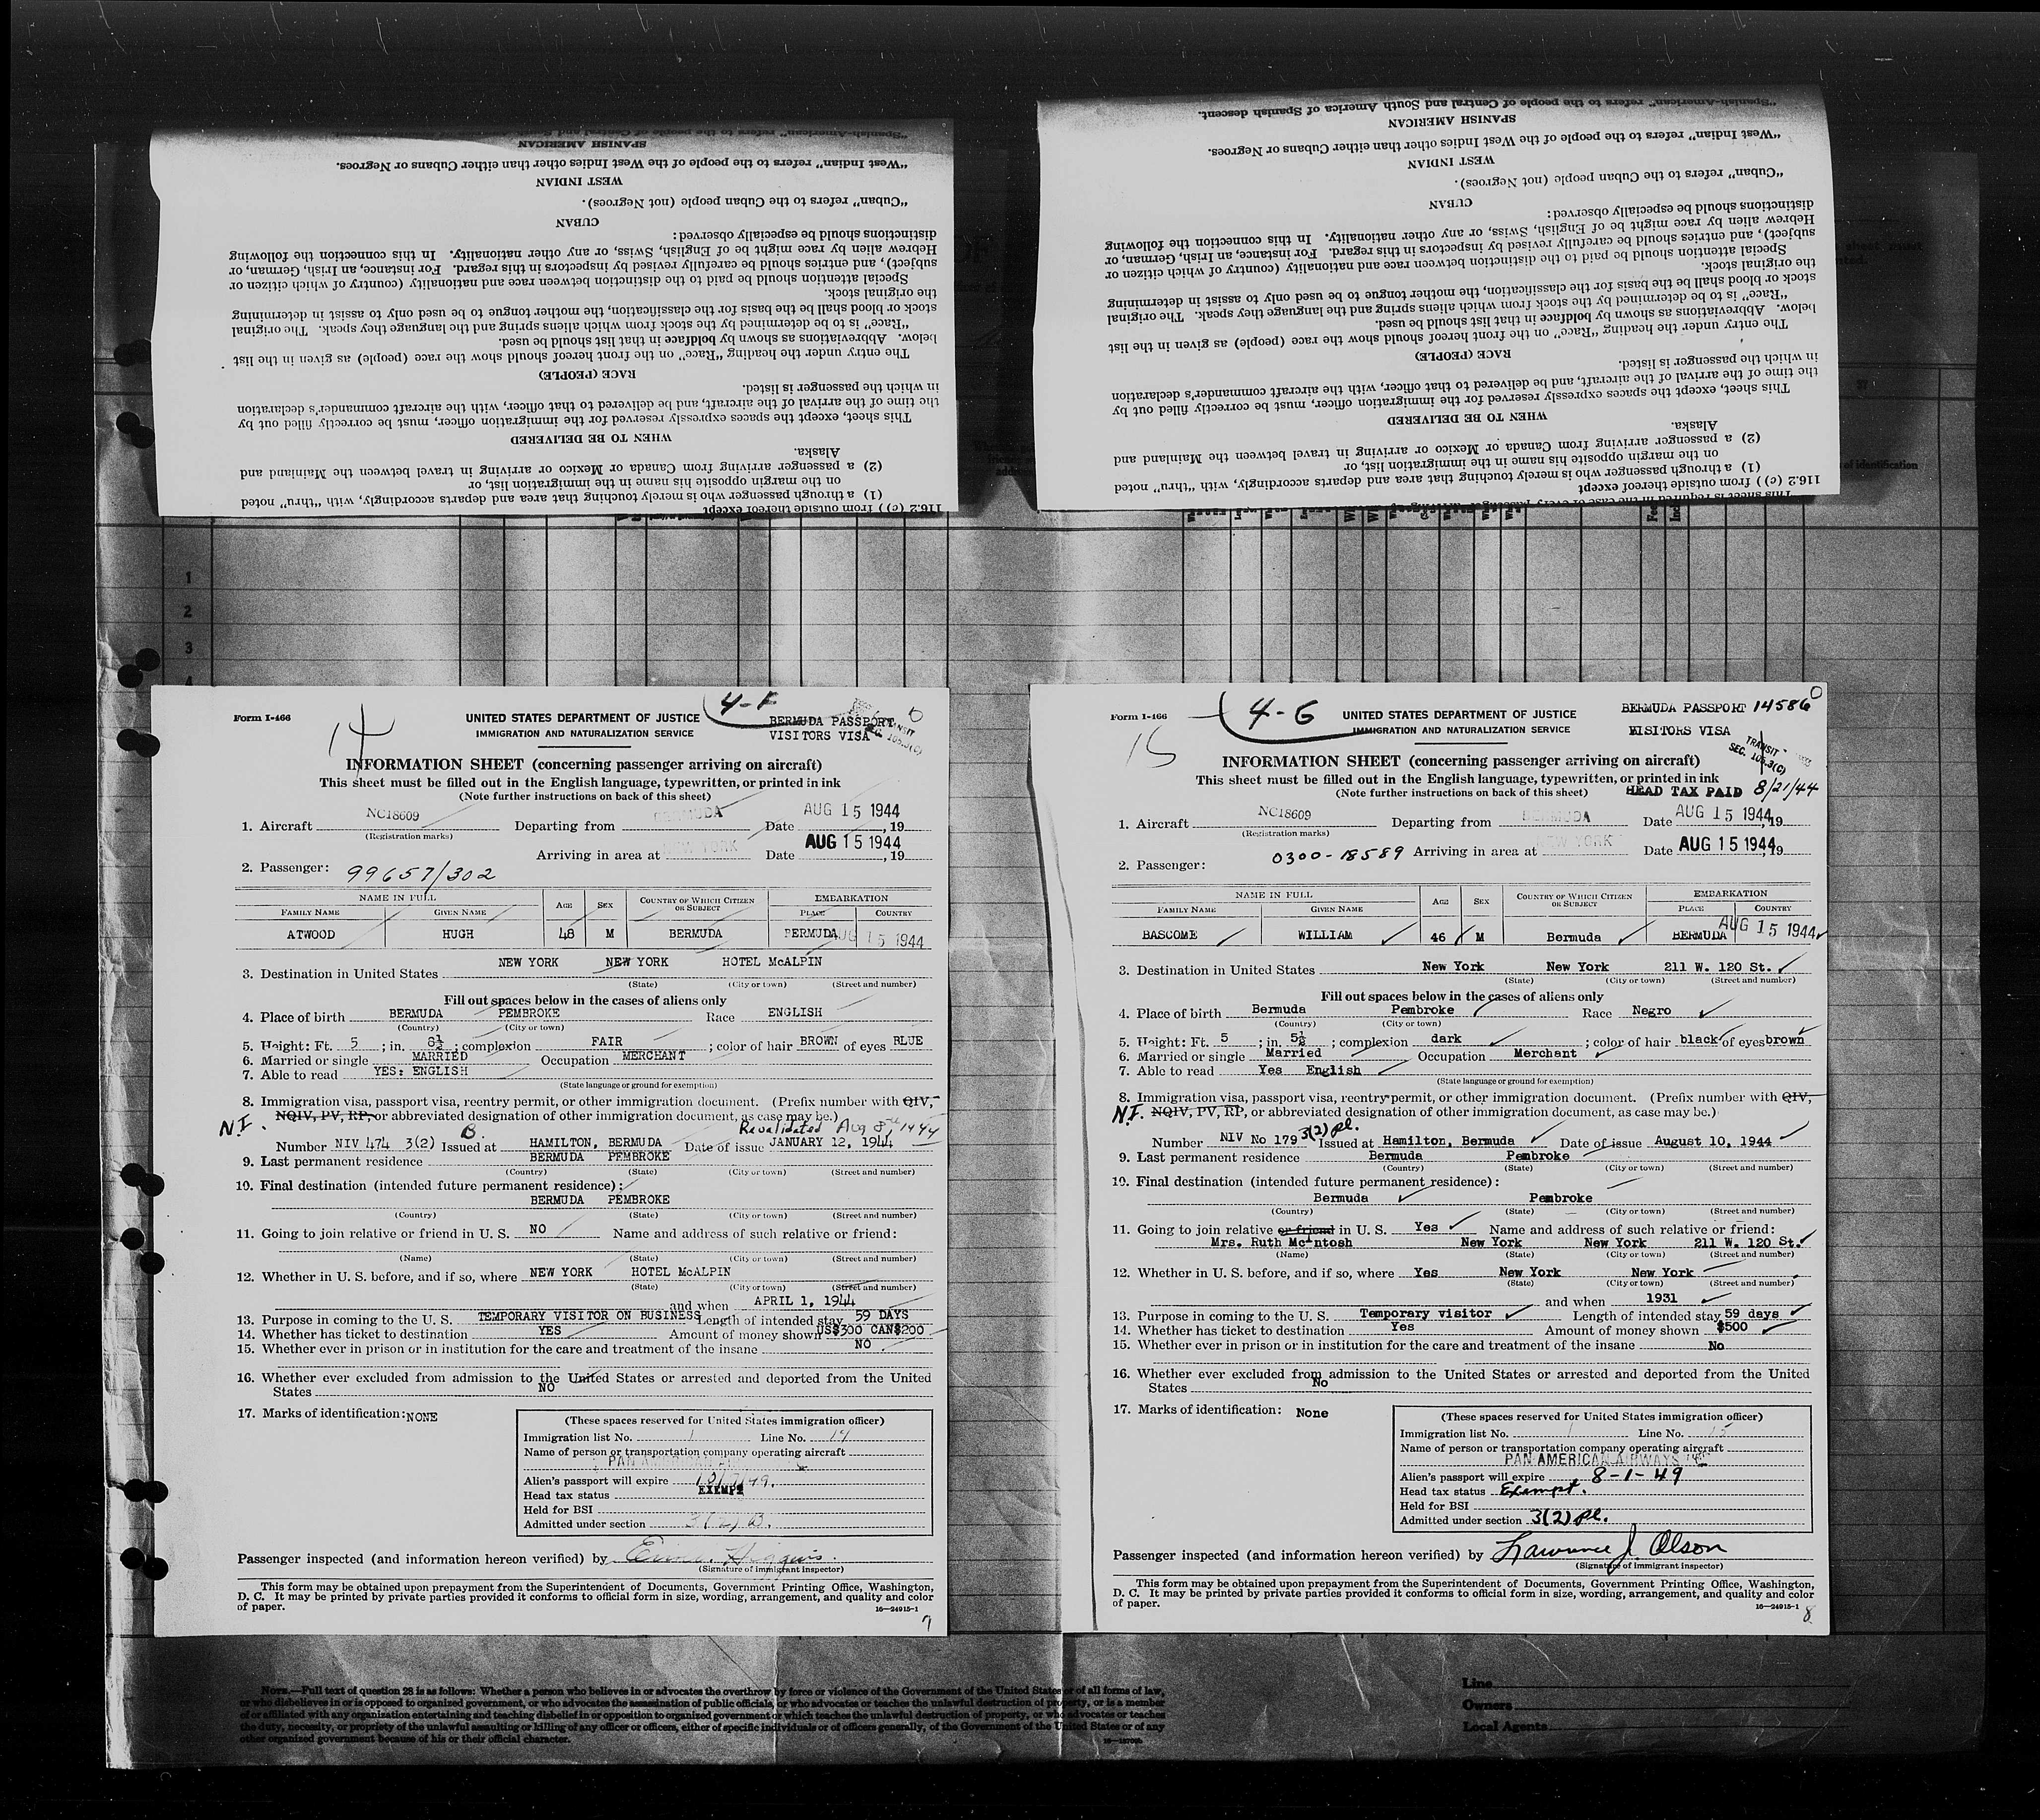 "Spanish-American" refers to the people of Central and
SPANISH AMERICAN
"West Indian" refers to the people of the West Indies other than either Cubans or Negroes.
WEST INDIAN
"Cuban" refers to the people (not Negroes).
CUBAN
distinctions should be especially observed:
Hebrew alien by race might be of English, Swiss, or any other nationality. In this connection the following
subject), and entries should be carefully revised by inspectors in this regard. For instance, an Irish, German, or
Special attention should be paid to the distinction between race and nationality (country of which citizen or
the original stock.
stock or blood shall be the basis for the classification, the mother tongue to be used only to assist in determining
"Race" is to be determined by the stock from which aliens spring and the language they speak. The original
below. Abbreviations as shown by boldface in that list should be used.
The entry under the heading "Race" on the front hereof should show the race (people) as given in the list
RACE (PEOPLE)
in which the passenger is listed.
the time of the arrival of the aircraft, and be delivered to that officer, with the aircraft commander's declaration
This sheet, except the spaces expressly reserved for the immigration officer, must be correctly filled out by
WHEN TO BE DELIVERED
Alaska.
(2) a passenger arriving from Canada or Mexico or arriving in travel between the Mainland and
on the margin opposite his name in the immigration list, or
(1) a through passenger who is merely touching that area and departs accordingly, with "thru" noted
116.2 (c)) from outside thereof except
"Spanish-American" refers to the people of Central and South America of Spanish descent.
SPANISH AMERICAN
"West Indian" refers to the people of the West Indies other than either Cubans or Negroes.
WEST INDIAN
"Cuban" refers to the Cuban people (not Negroes).
CUBAN
distinctions should be especially observed:
Hebrew alien by race might be of English, Swiss, or any other nationality. In this connection the following
subject), and entries should be carefully revised by inspectors in this regard. For instance, an Irish, German, or
Special attention should be paid to the distinction between race and nationality (country of which citizen or
the original stock.
stock or blood shall be the basis for the classification, the mother tongue to be used only to assist in determining
"Race" is to be determined by the stock from which aliens spring and the language they speak. The original
below. Abbreviations as shown by boldface in that list should be used.
The entry under the heading "Race" on the front hereof should show the race (people) as given in the list
RACE (PEOPLE)
in which the passenger is listed.
the time of the arrival of the aircraft, and be delivered to that officer, with the aircraft commander's declaration
This sheet, except the spaces expressly reserved for the immigration officer, must be correctly filled out by
WHEN TO BE DELIVERED
Alaska.
(2) a passenger arriving from Canada or Mexico or arriving in travel between the Mainland and
on the margin opposite his name in the immigration list, or
(1) a through passenger who is merely touching that area and departs accordingly, with "thru" noted
116.2 (c)) from outside thereof except
This sheet is required in the case of every passenger
of identification
1
2
3
4
4-F
Form I-466
14
UNITED STATES DEPARTMENT OF JUSTICE
IMMIGRATION AND NATURALIZATION SERVICE
BERMUDA PASSPORT
VISITORS VISA
INFORMATION SHEET (concerning passenger arriving on aircraft)
This sheet must be filled out in the English language, typewritten, or printed in ink
(Note further instructions on back of this sheet)
1. Aircraft NC18609 Departing from BERMUDA Date AUG 15 1944, 19
(Registration marks)
Arriving in area at NEW YORK Date AUG 15 1944, 19
2. Passenger: 99657/302
NAME IN FULL AGE SEX COUNTRY OF WHICH CITIZEN OR SUBJECT EMBARKATION
FAMILY NAME GIVEN NAME PLACE COUNTRY
ATWOOD HUGH 48 M BERMUDA BERMUDA AUG 15 1944
3. Destination in United States NEW YORK NEW YORK HOTEL McALPIN
(State) (City or town) (Street and number)
Fill out spaces below in the cases of aliens only
4. Place of birth BERMUDA PEMBROKE Race ENGLISH
(Country) (City or town)
5. Height: Ft. 5 ; in. 8½ ; complexion FAIR ; color of hair BROWN of eyes BLUE
6. Married or single MARRIED Occupation MERCHANT
7. Able to read YES: ENGLISH
(State language or ground for exemption)
8. Immigration visa, passport visa, reentry permit, or other immigration document. (Prefix number with QIV,
NQIV, PV, RP, or abbreviated designation of other immigration document, as case may be.)
N.I. B. Revalidated Aug 8th 1944
Number NIV 474 3(2) Issued at HAMILTON, BERMUDA Date of issue JANUARY 12, 1944
9. Last permanent residence BERMUDA PEMBROKE
(Country) (State) (City or town) (Street and number)
10. Final destination (intended future permanent residence):
BERMUDA PEMBROKE
(Country) (State) (City or town) (Street and number)
11. Going to join relative or friend in U. S. NO Name and address of such relative or friend:
(Name) (State) (City or town) (Street and number)
12. Whether in U. S. before, and if so, where NEW YORK HOTEL McALPIN
(State) (City or town) (Street and number)
and when APRIL 1, 1944
13. Purpose in coming to the U. S. TEMPORARY VISITOR ON BUSINESS Length of intended stay 59 DAYS
14. Whether has ticket to destination YES Amount of money shown US$300 CAN$200
15. Whether ever in prison or in institution for the care and treatment of the insane NO
16. Whether ever excluded from admission to the United States or arrested and deported from the United
States NO
17. Marks of identification: NONE
(These spaces reserved for United States immigration officer)
Immigration list No. 1 Line No. 14
Name of person or transportation company operating aircraft
PAN AMERICAN
Alien's passport will expire
Head tax status EXEMPT
Held for BSI
Admitted under section 3(2) B.
Passenger inspected (and information hereon verified) by Higgins
(Signature of immigrant inspector)
This form may be obtained upon prepayment from the Superintendent of Documents, Government Printing Office, Washington,
D. C. It may be printed by private parties provided it conforms to official form in size, wording, arrangement, and quality and color
of paper.
16—24915-1
7
4-G
Form I-466
15
UNITED STATES DEPARTMENT OF JUSTICE
IMMIGRATION AND NATURALIZATION SERVICE
BERMUDA PASSPORT 14586
VISITORS VISA
TRANSIT
SEC. 105.3(C)
INFORMATION SHEET (concerning passenger arriving on aircraft)
This sheet must be filled out in the English language, typewritten, or printed in ink
(Note further instructions on back of this sheet)
HEAD TAX PAID 8/21/44
1. Aircraft NC18609 Departing from BERMUDA Date AUG 15 1944, 19
(Registration marks)
Arriving in area at NEW YORK Date AUG 15 1944, 19
2. Passenger: 0300-18589
NAME IN FULL AGE SEX COUNTRY OF WHICH CITIZEN OR SUBJECT EMBARKATION
FAMILY NAME GIVEN NAME PLACE COUNTRY
BASCOME WILLIAM 46 M Bermuda BERMUDA AUG 15 1944
3. Destination in United States New York New York 211 W. 120 St.
(State) (City or town) (Street and number)
Fill out spaces below in the cases of aliens only
4. Place of birth Bermuda Pembroke Race Negro
(Country) (City or town)
5. Height: Ft. 5 ; in. 5½ ; complexion dark ; color of hair black of eyes brown
6. Married or single Married Occupation Merchant
7. Able to read Yes English
(State language or ground for exemption)
8. Immigration visa, passport visa, reentry permit, or other immigration document. (Prefix number with QIV,
NQIV, PV, RP, or abbreviated designation of other immigration document, as case may be.)
N.I.
Number NIV No 179 3(2) pl. Issued at Hamilton, Bermuda Date of issue August 10, 1944
9. Last permanent residence Bermuda Pembroke
(Country) (State) (City or town) (Street and number)
10. Final destination (intended future permanent residence):
Bermuda Pembroke
(Country) (State) (City or town) (Street and number)
11. Going to join relative or friend in U. S. Yes Name and address of such relative or friend:
Mrs. Ruth McIntosh New York New York 211 W. 120 St.
(Name) (State) (City or town) (Street and number)
12. Whether in U. S. before, and if so, where Yes New York New York
(State) (City or town) (Street and number)
and when 1931
13. Purpose in coming to the U. S. Temporary visitor Length of intended stay 59 days
14. Whether has ticket to destination Yes Amount of money shown $500
15. Whether ever in prison or in institution for the care and treatment of the insane No
16. Whether ever excluded from admission to the United States or arrested and deported from the United
States No
17. Marks of identification: None
(These spaces reserved for United States immigration officer)
Immigration list No. 1 Line No. 15
Name of person or transportation company operating aircraft
PAN AMERICAN AIRWAYS
Alien's passport will expire 8-1-49
Head tax status Exempt.
Held for BSI
Admitted under section 3(2) pl.
Passenger inspected (and information hereon verified) by Lawrence J. Olson
(Signature of immigrant inspector)
This form may be obtained upon prepayment from the Superintendent of Documents, Government Printing Office, Washington,
D. C. It may be printed by private parties provided it conforms to official form in size, wording, arrangement, and quality and color
of paper.
16—24915-1
8
NOTE.—Full text of question 28 is as follows: Whether a person who believes in or advocates the overthrow by force or violence of the Government of the United States or of all forms of law,
or who disbelieves in or is opposed to organized government, or who advocates the assassination of public officials, or who advocates or teaches the unlawful destruction of property, or is a member
of or affiliated with any organization entertaining and teaching disbelief in or opposition to organized government or which teaches the unlawful destruction of property, or who advocates or teaches
the duty, necessity, or propriety of the unlawful assaulting or killing of any officer or officers, either of specific individuals or of officers generally, of the Government of the United States or of any
other organized government because of his or their official character.
Line
Owners
Local Agents